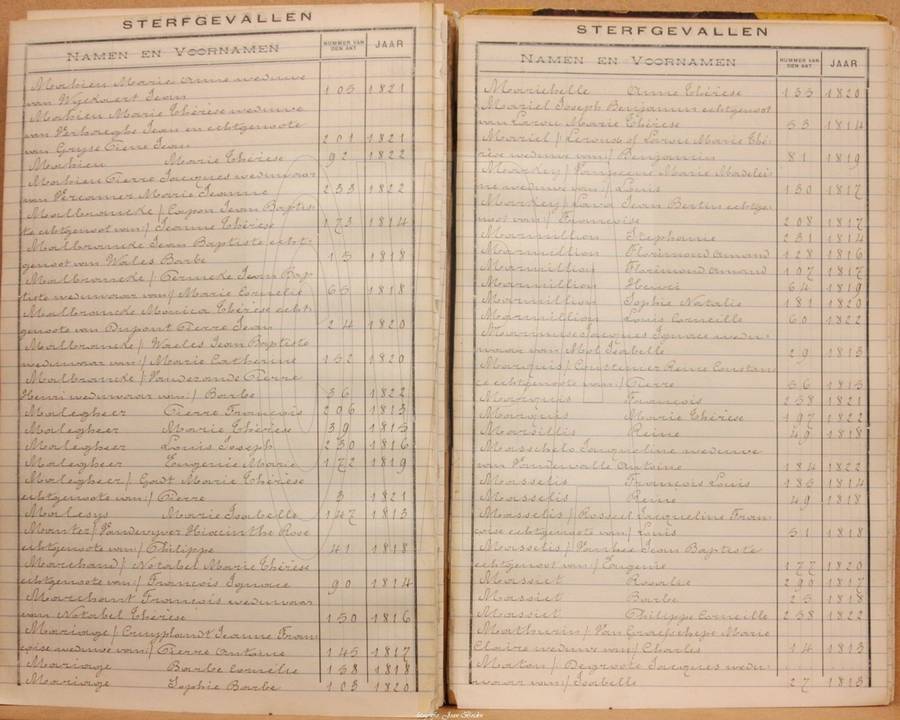 STERFGEVALLEN
NAMEN EN VOORNAMEN NUMMER VAN DEN AKT JAAR
Mahieu Marie Anne weduwe
van Wyckaert Jean 105 1821
Mahieu Marie Thérèse weduwe
van Verhaeghe Jean en echtgenoote
van Gryse Pierre Jean 201 1821
Mahieu Marie Thérèse 92 1822
Mahieu Pierre Jacques weduwaar
van Vercamer Marie Jeanne 233 1822
Malbrancke / Capon Jean Baptis-
te echtgenoot van / Jeanne Thérèse 173 1814
Malbrancke Jean Baptiste echt-
genoot van Wales Barbe 15 1818
Malbrancke / Pernicke Jean Bap-
tiste weduwaar van / Marie Cornelie 65 1818
Malbrancke Monica Thérèse echt-
genoote van Dupont Pierre Jean 24 1820
Malbrancke / Waeles Jean Baptiste
weduwaar van / Marie Catherine 152 1820
Malbrancke / Vanderande Pierre
Henri weduwaar van / Barbe 36 1822
Malegheer Pierre François 206 1813
Malegheer Marie Thérèse 39 1815
Malegheer Louis Joseph 230 1816
Malegheer Eugenie Marie 172 1819
Malegheer / Gadt Marie Thérèse
echtgenoote van / Pierre 3 1821
Malesys Marie Isabelle 147 1813
Manter / Vandewyver Hiacinthe Rose
echtgenoote van / Philippe 41 1818
Marchand / Notabel Marie Thérèse
echtgenoote van / François Ignace 90 1814
Marchant François weduwaar
van Notabel Thérèse 150 1816
Mariage / Cruyplandt Jeanne Fran-
çoise weduwe van / Pierre Antoine 145 1817
Mariage Barbe Cornélie 158 1818
Mariage Sophie Barbe 103 1820
STERFGEVALLEN
NAMEN EN VOORNAMEN NUMMER VAN DEN AKT JAAR
Mariebelle Anne Thérèse 155 1820
Mariel Joseph Benjamin echtgenoot
van Larou Marie Thérèse 53 1814
Mariel / Leroude of Larou Marie Thé-
rèse weduwe van / Benjamin 81 1819
Markey / Marie Madelei-
ne weduwe van / Louis 130 1817
Markey / Lava Jean Bertin echtge-
noot van / Françoise 208 1817
Marmillion Stephanie 231 1814
Marmillion Florimond Amand 128 1816
Marmillion Florimond Amand 107 1817
Marmillion Henri 64 1819
Marmillion Sophie Natalie 181 1820
Marmillion Louis Corneille 60 1822
Jacques Ignace wedu-
waar van Mol Isabelle 29 1813
Marquis / Coustenier Reine Constan-
ce echtgenoote van / Pierre 56 1813
Marquis François 238 1821
Marquis Marie Thérèse 197 1822
Reine 49 1818
Masschele Jacqueline weduwe
van Vandewalle Antoine 184 1822
Masselis François Louis 185 1814
Masselis Reine 49 1818
Masselis / Rosseel Jacqueline Fran-
çoise echtgenoote van / Louis 51 1818
Masselis / Vanhee Jean Baptiste
echtgenoot van / Eugenie 177 1820
Massiet Rosalie 290 1817
Massiet Barbe 25 1818
Massiet Philippe Corneille 258 1822
Mathurin / Van Graefschepe Marie
Claire weduwe van / Charles 14 1813
Maton / Degroote Jacques wedu-
waar van / Isabelle 27 1813